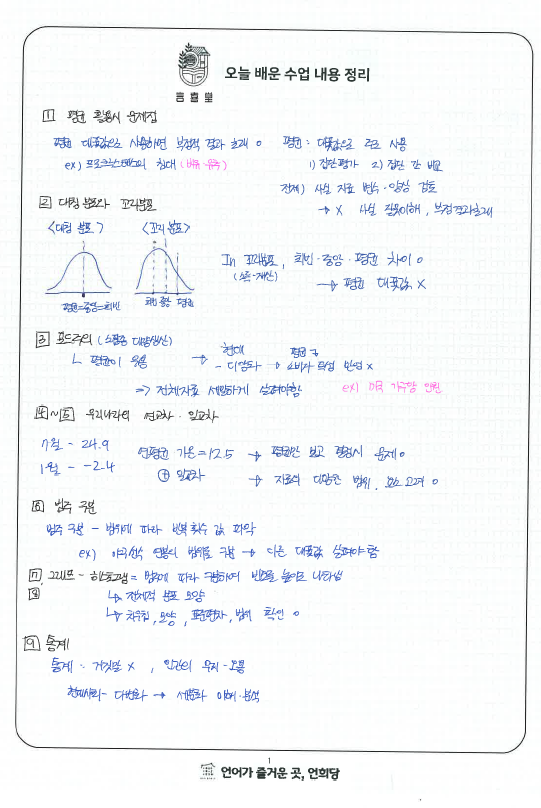 言喜堂
오늘 배운 수업 내용 정리
1 평균 활용시 문제점
평균 대푯값으로 사용하면 부정적 결과 초래 o
ex) 프로크루스테스의 침대 (비유·유추)
평균 : 대푯값으로 주로 사용
1) 집단평가 2) 집단 간 비교
전제) 사실 자료 변수·양상 검토
→ X 사실 잘못이해, 부정결과초래
2 대칭 분포와 꼬리분포
<대칭 분포> <꼬리 분포>
평균=중앙=최빈
최빈 중앙 평균
In 꼬리분포, 최빈·중앙·평균 차이 o
(소득·재산)
→ 평균 대푯값 X
3 포드주의 (소품종 대량생산)
ㄴ 평균이 유용 → 현대 - 다양화 → 평균 구 소비자 특성 반영 x
=> 전체자료 세밀하게 살펴야함
ex) 미국 가구당 인원
4~5 우리나라의 연교차·일교차
7월 - 24.9
1월 - -2.4
연평균 기온=12.5 → 평균만 보고 결정시 문제o
+ 일교차 → 자료의 다양한 범위, 요소 고려 o
6 범주 구분
범주 구분 - 범위에 따라 반복 횟수 값 파악
ex) 야구선수 연봉의 범위로 구분 → 다른 대푯값 살펴야 함
7, 그래프 - 히스토그램 = 범주에 따라 구분하여 빈도를 높이로 나타냄
8 ㄴ 전체적 분포 모양
ㄴ 치우침, 모양, 표준편차, 범위 확인 o
9 통계
통계 - 거짓말 X , 인간의 무지·오용
현대사회- 다변화 → 세분화 이해·분석
1
언어가 즐거운 곳, 언희당